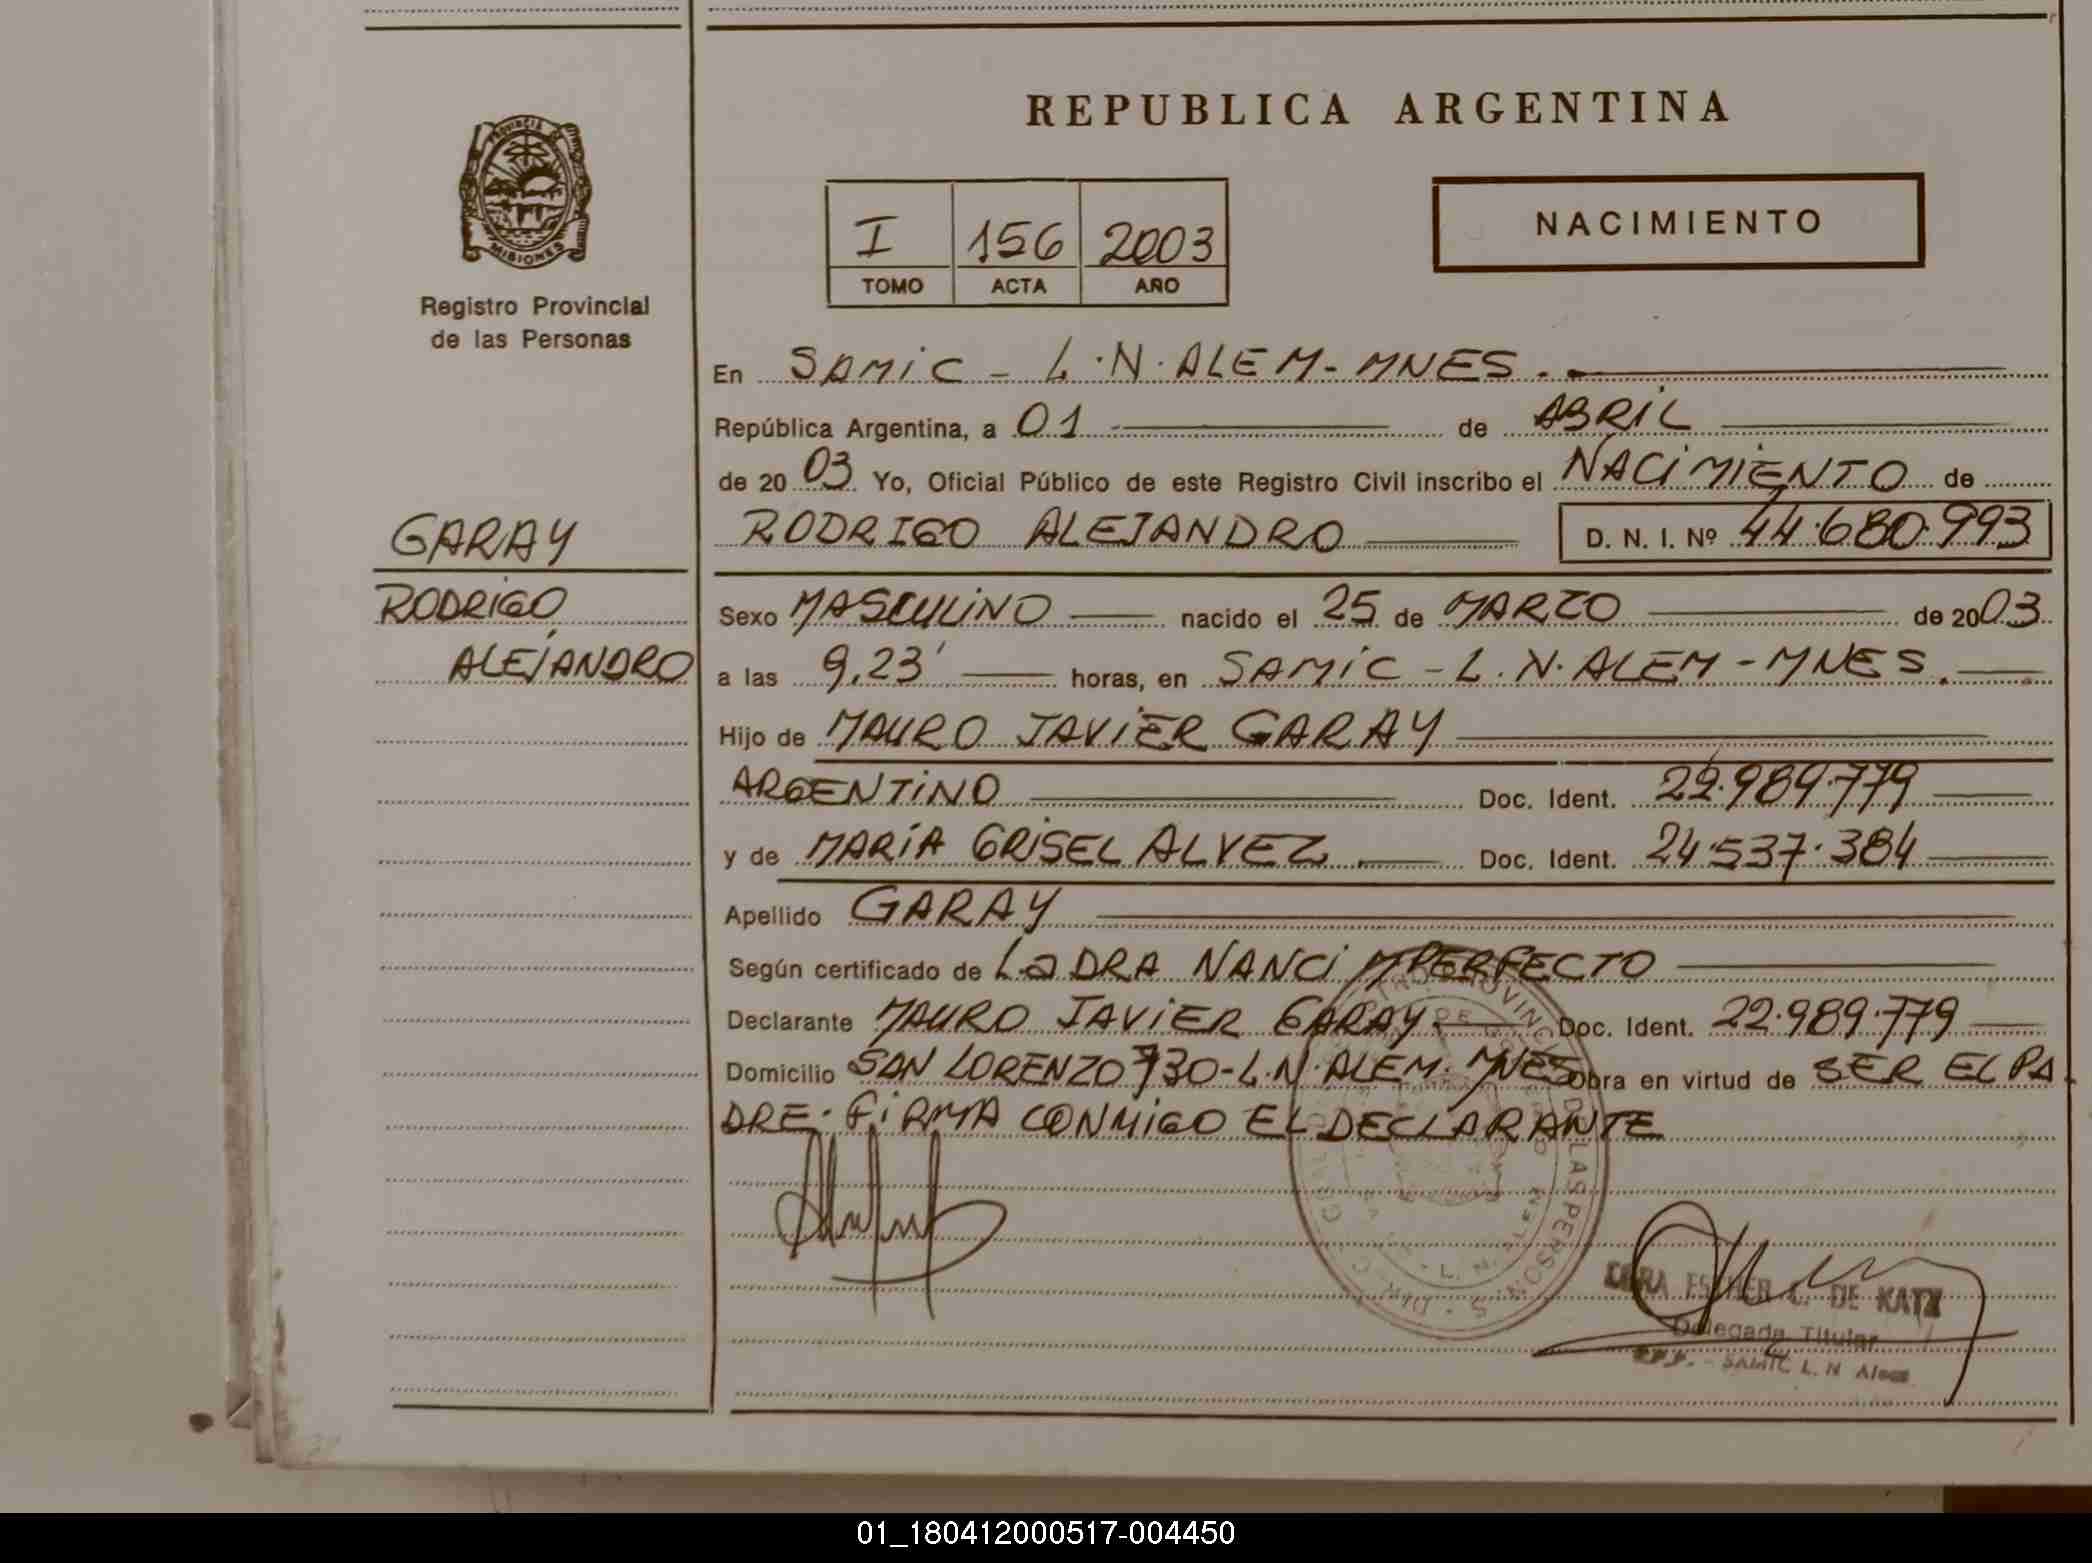 REPUBLICA ARGENTINA
PROVINCIA DE MISIONES
Registro Provincial
de las Personas
I 156 2003
TOMO ACTA AÑO
NACIMIENTO
En SAMIC - L.N. ALEM - MNES.
República Argentina, a 01 de ABRIL
de 2003 Yo, Oficial Público de este Registro Civil inscribo el NACIMIENTO de
GARAY
RODRIGO ALEJANDRO
RODRIGO ALEJANDRO D. N. I. Nº 44.680.993
Sexo MASCULINO nacido el 25 de MARZO de 2003
a las 9,23' horas, en SAMIC - L.N. ALEM - MNES.
Hijo de MAURO JAVIER GARAY
ARGENTINO Doc. Ident. 22.989.779
y de MARÍA GRISEL ALVEZ Doc. Ident. 24.537.384
Apellido GARAY
Según certificado de La DRA NANCI M PERFECTO
Declarante MAURO JAVIER GARAY Doc. Ident. 22.989.779
Domicilio SAN LORENZO 730 - L.N. ALEM. MNES Obra en virtud de SER EL PA
DRE. FIRMA CONMIGO EL DECLARANTE
ESTHER C. DE KATZ
Delegada Titular
R.P.P. - SAMIC L. N Alem
01_180412000517-004450